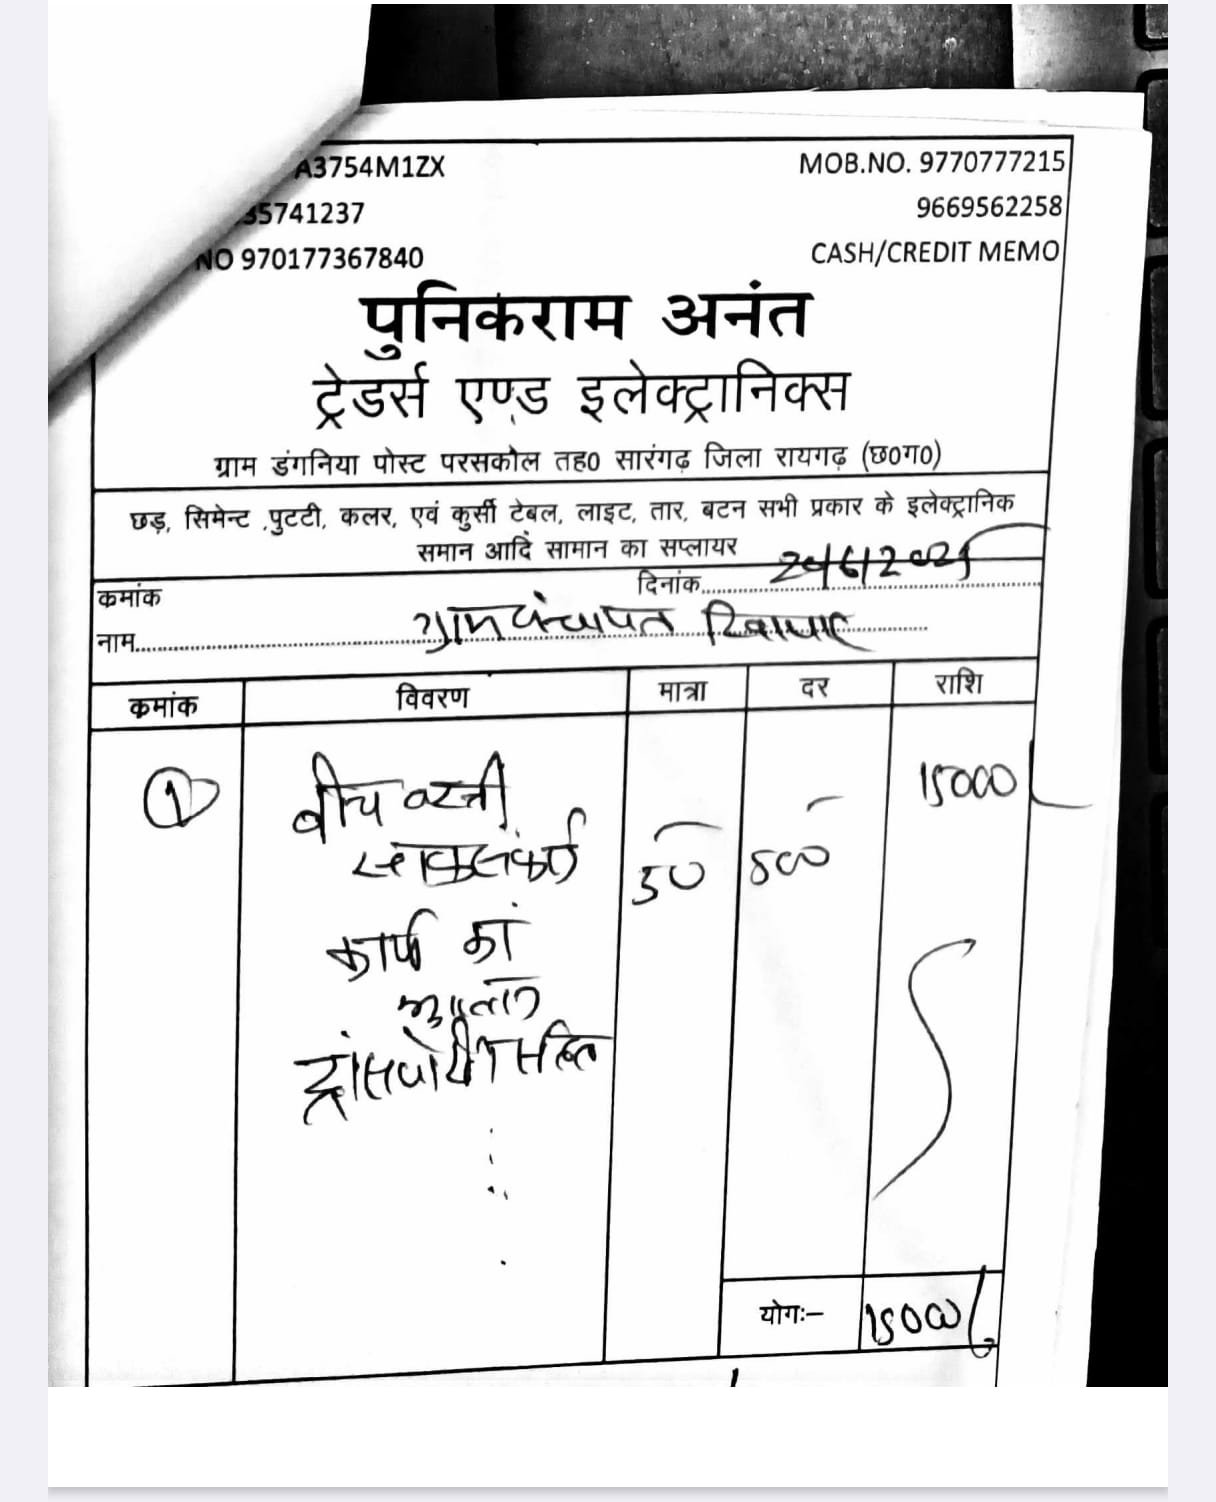 A3754M1ZX
MOB.NO. 9770777215
35741237
9669562258
NO 970177367840
CASH/CREDIT MEMO
पुनिकराम अनंत
ट्रेडर्स एण्ड इलेक्ट्रानिक्स
ग्राम डंगनिया पोस्ट परसकोल तह0 सारंगढ़ जिला रायगढ़ (छ0ग0)
छड़, सिमेन्ट ,पुटटी, कलर, एवं कुर्सी टेबल, लाइट, तार, बटन सभी प्रकार के इलेक्ट्रानिक
समान आदि सामान का सप्लायर
कमांक
दिनांक
नाम ग्राम पंचायत
कमांक विवरण मात्रा दर राशि
1 बीच बस्ती 15000
30 500
कार्य का
भुगतान
सहित
योगः– 15000